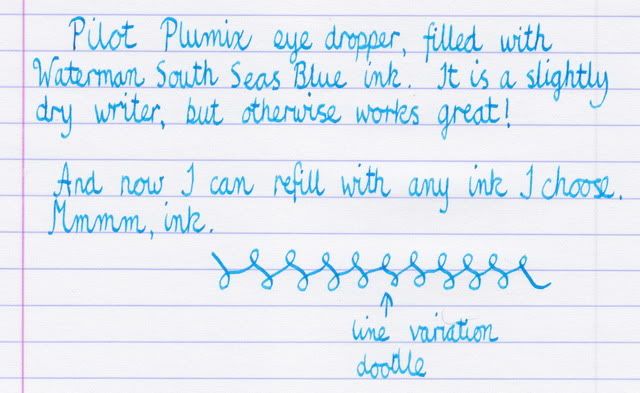 Pilot Plumix eye dropper, filled with
Waterman South Seas Blue ink. It is a slightly
dry writer, but otherwise works great!
And now I can refill with any ink I choose.
Mmmm, ink.
line variation
doodle